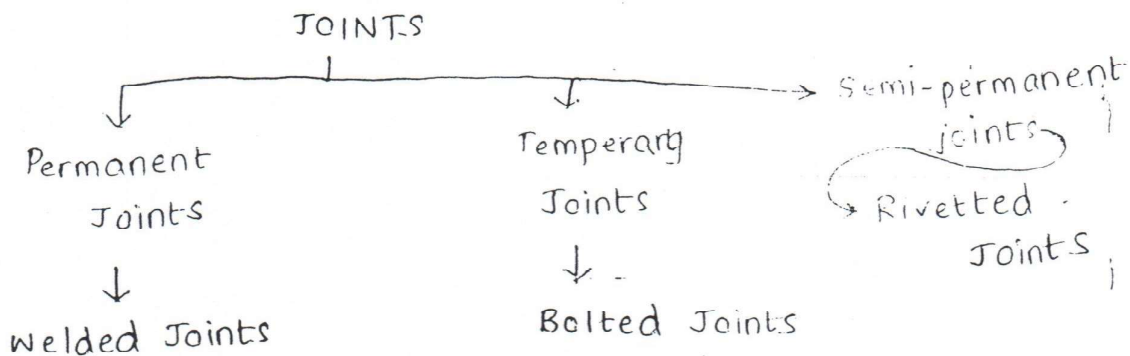 JOINTS
Permanent
Joints
Welded Joints
Temperary
Joints
Bolted Joints
Semi-permanent
joints
Rivetted
Joints